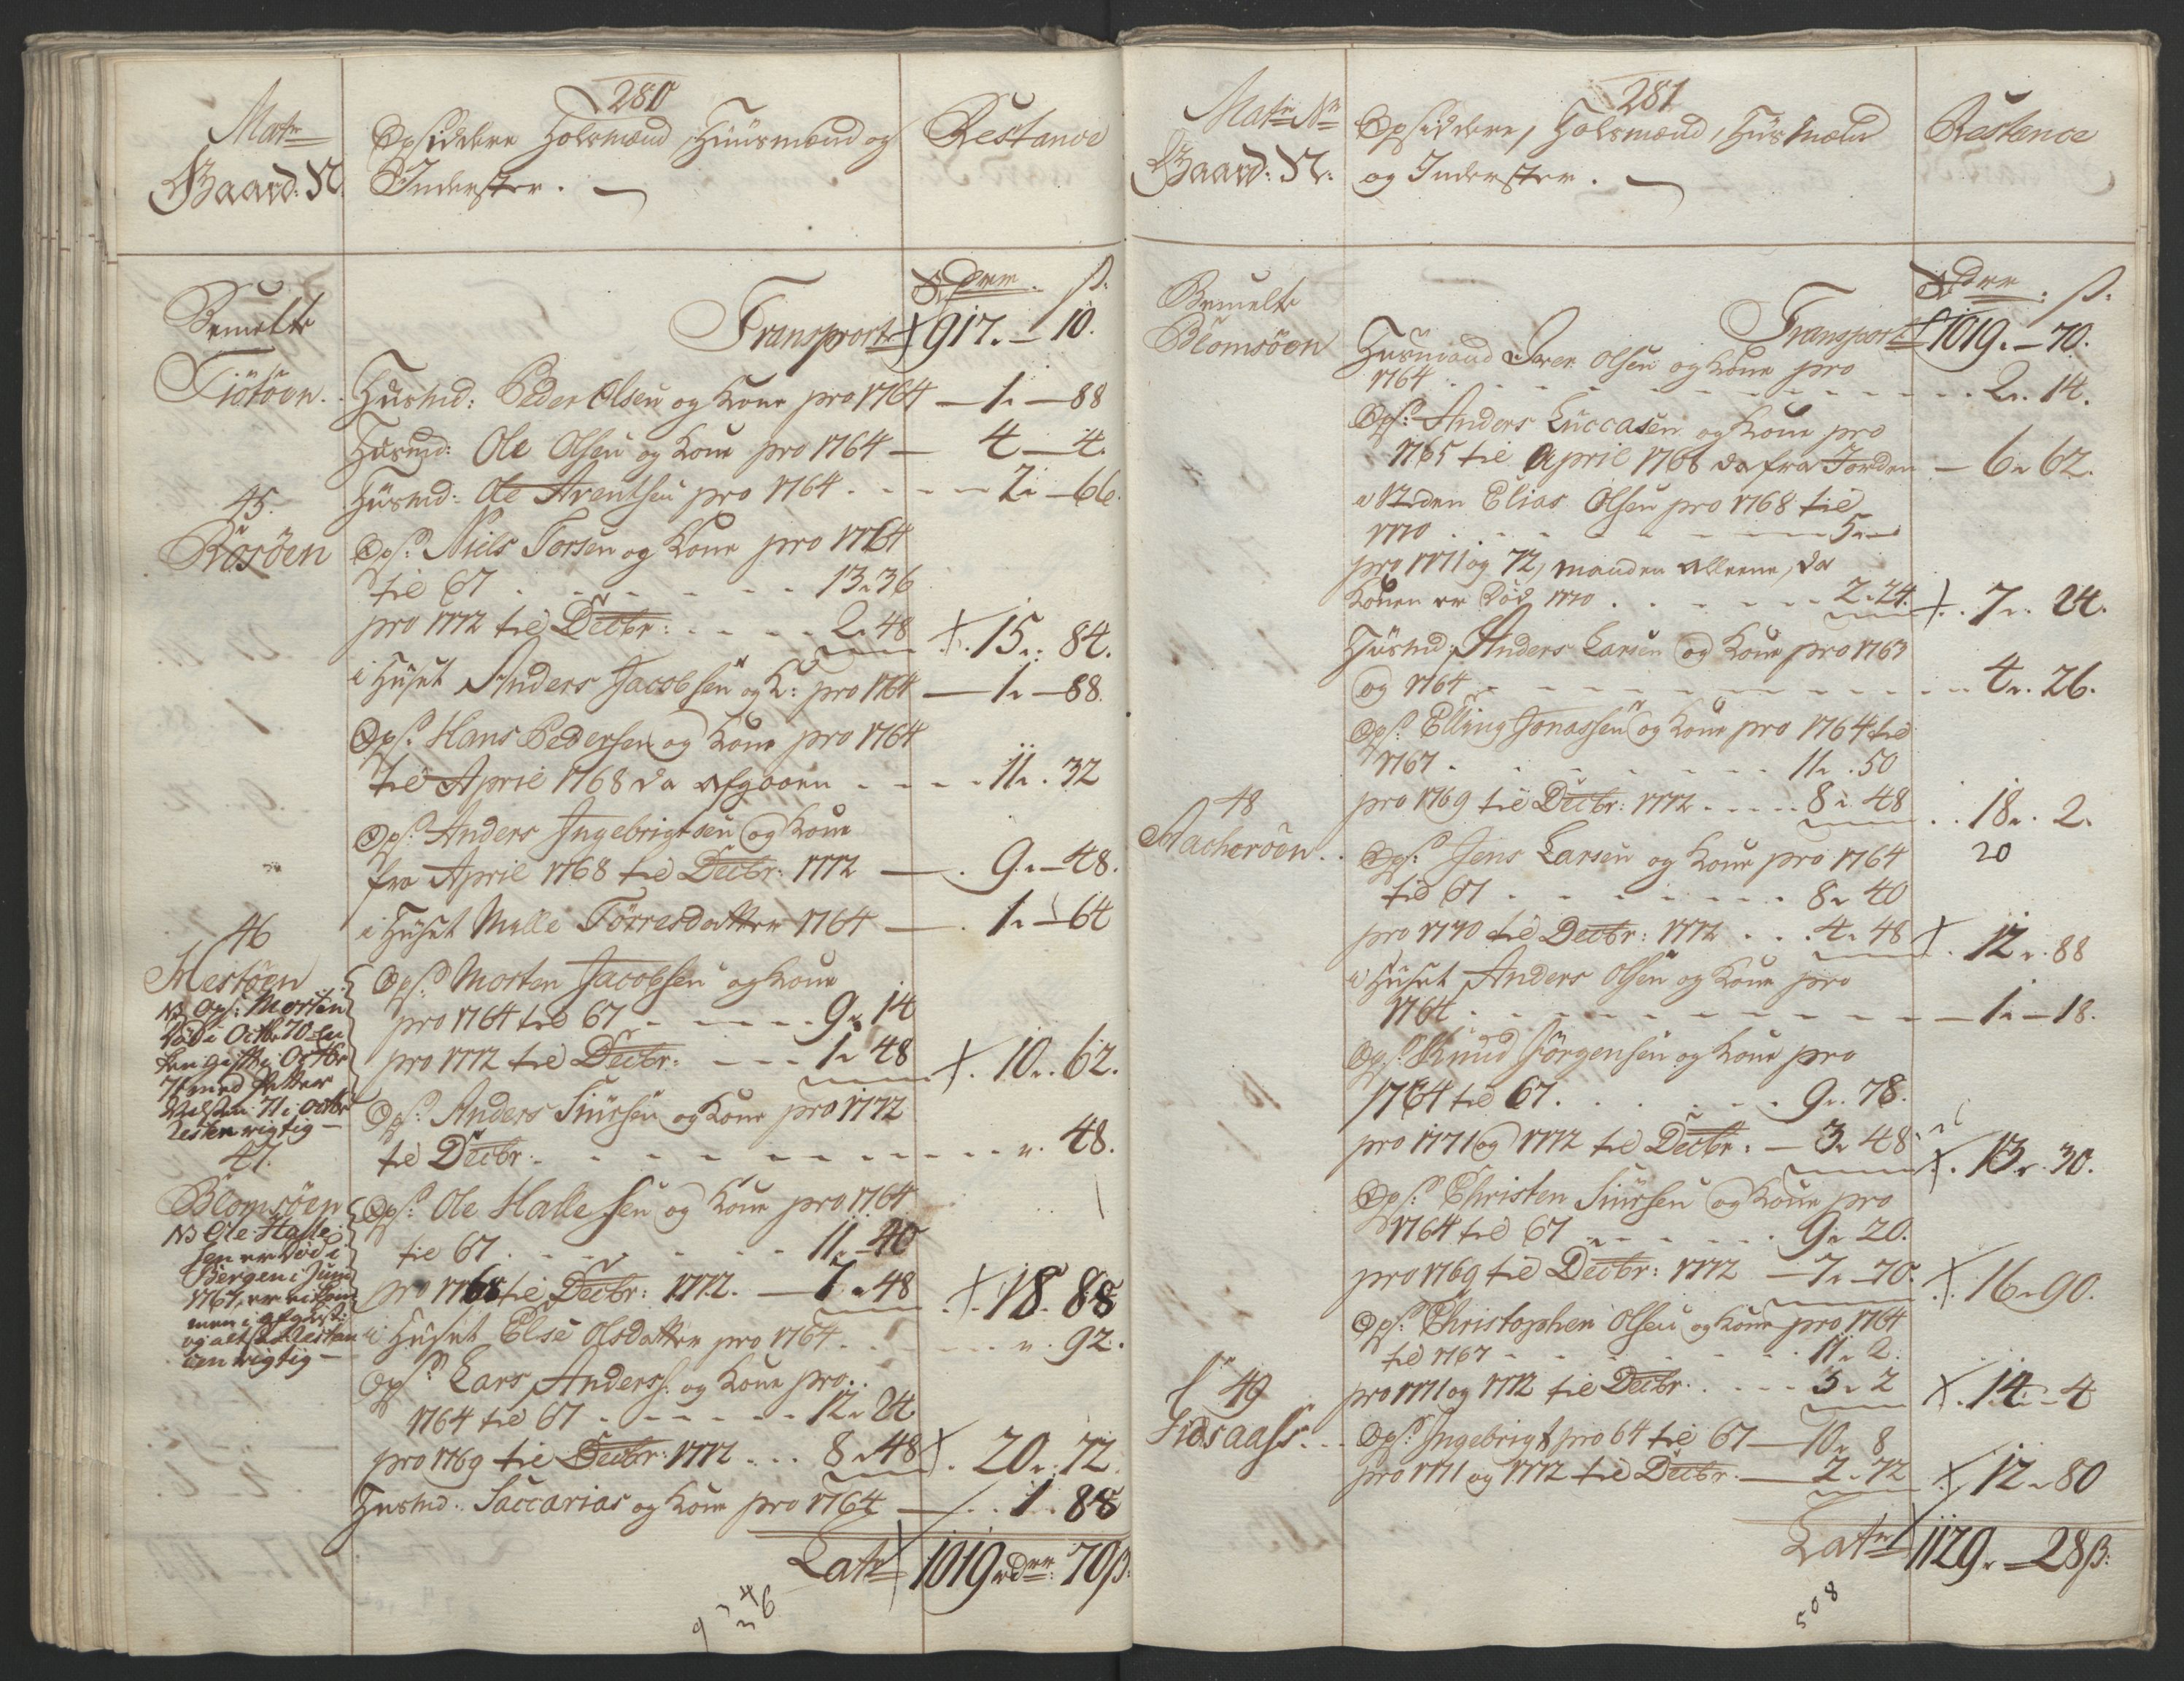 280
Matr
Gaard: N.
Opsiddere Holsmænd, Huusmænd og
Inderster.
Restance
rdrr. ß.
Bemelte
Tiötöen.
Transport 917. 10.
Husmd: Peder Olsen og Kone pro 1764 1. 88
Husmd: Ole Olsen og Kone pro 1764 4. 4.
Husmd: Ole Arentsen pro 1764 2. 66.
45.
Rosöen
Ops: Niels Torsen og Kone pro 1764
til 67 13. 36
pro 1772 til Decbr: 2. 48 15. 84.
i Huset Anders Jacobsen og K: pro 1764 1. 88.
Ops: Hans Pedersen og Kone pro 1764
til April 1768 da afgaaen 11. 32
Ops: Anders Ingebrigtsen og Kone
fra April 1768 til Decbr: 1772 9. 48.
i Huset Malle Törresdatter 1764 1. 64
46
Mestöen
NB Ops: Morten
död i Octbr 70 En
ken gift i Octbr
71 med Petter
Nilsen 71 i Octbr
Resten rigtig
Ops: Morten Jacobsen og Kone
pro 1764 til 67 9. 14
pro 1772 til Decbr: 1. 48 10. 62.
Ops: Anders Siursen og Kone pro 1772
til Decbr: ". 48.
47.
Blomsöen
NB Ole Halle
sen er död i
Bergen i Juni
1767, er ei kom
men i afgift:
og altsaa Restan
cen rigtig
Ops: Ole Hallesen og Kone pro 1764
til 67 11. 40
pro 1768 til Decbr: 1772. 7. 48 18. 88
i Huset Else Olsdatter pro 1764 ". 92.
Ops: Lars Anders: og Kone pro
1764 til 67 12. 24
pro 1769 til Decbr: 1772 8. 48 20. 72.
Husmd: Saccarias og Kone pro 1764 1. 88
Latr 1019 rdrr: 70 ß.
281
Matr Nr
Gaard: N:
Opsiddere, Holsmænd, Husmænd
og Inderster.
Restance
rdrr. ß.
Bemelte
Blomsöen
Transport 1019. 70.
Husmand Iver Olsen og Kone pro
1764 2. 14.
Ops: Anders Luccasen og Kone pro
1765 til April 1768 da fra Jorden 6. 62.
Elias Olsen pro 1768 til
1770 5.
pro 1771 og 72, manden alleene, da
Konen er död 1770 2. 24. 7. 24.
Husmd: Anders Larsen og Kone pro 1763
og 1764 4. 26.
Ops: Elling Jonassen og Kone pro 1764 til
1767 11. 50
pro 1769 til Decbr: 1772 8. 48 18. 2.
20
48
Macheröen
Ops: Jens Larsen og Kone pro 1764
til 67 8. 40
pro 1770 til Decbr: 1772 4. 48 12. 88
i Huset Anders Olsen og Kone pro
1764 1. 18.
Ops: Knud Jörgensen og Kone pro
1764 til 67. 9. 78.
pro 1771 og 1772 til Decbr: 3. 48 13. 30.
Ops: Christen Siursen og Kone pro
1764 til 67 9. 20.
pro 1769 til Decbr: 1772 7. 70. 16. 90.
Ops: Christopher Olsen og Kone pro 1764
til 1767 11. 2.
pro 1771 og 1772 til Decbr. 3. 2 14. 4
49
Ops: Ingebrigt pro 64 til 67 10. 8
pro 1771 og 1772 til Decbr. 2. 72 12. 80
Latr 1129. 28 ß.
508